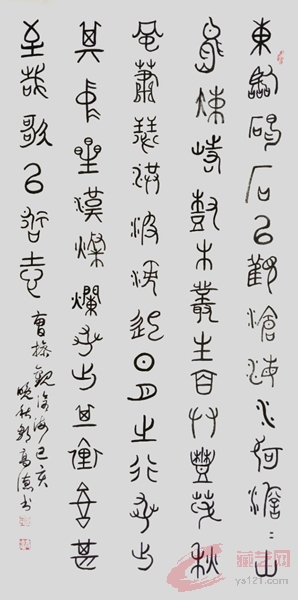 東臨碣石以觀滄海水何澹〻山
島竦峙樹木叢生百艸豐茂秋
風蕭瑟洪波涌起日月之行若出
其中星漢燦爛若出其裏幸甚
至哉歌以詠志
曹操觀滄海己亥
晚秋高德书
藏艺网
ys121.com